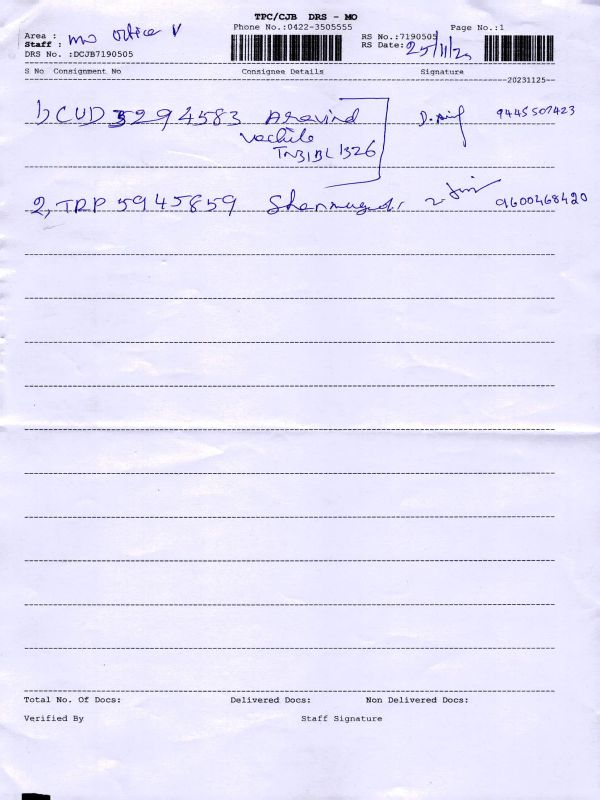 TPC/CJB DRS - MO
Phone No.:0422-3505555
Page No.:1
Area : MO Office V
RS No.:7190505
Staff :
RS Date: 25/11/23
DRS No. :DCJB7190505
S No Consignment No Consignee Details Signature
20231125
1) CUD 5294583 Aravind 9445507423
Vechile
TN31BL1326
2, TRP 5945859 9600468420
Total No. Of Docs: Delivered Docs: Non Delivered Docs:
Verified By Staff Signature